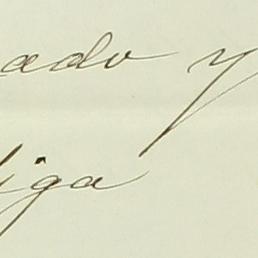 ado y
iga